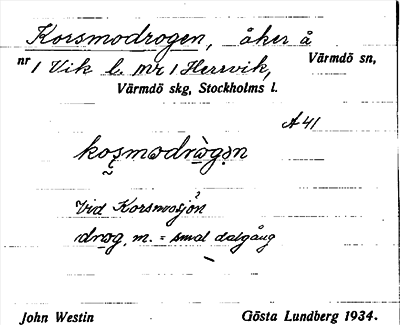 Korsmodrogen, åker å
nr 1 Vik l. nr 1 Herrvik, Värmdö sn,
Värmdö skg, Stockholms l.
A 41
koṣmodrò̱gən
Vid Korsmosjön
drog, m. = smal dalgång
John Westin Gösta Lundberg 1934.